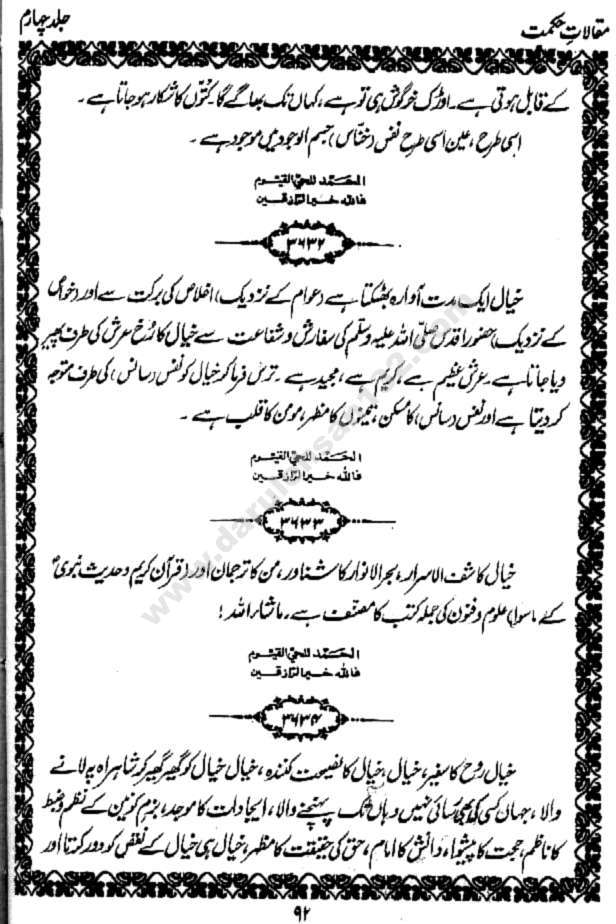 مقالاتِ حکمت
جلد چہارم
کے قابل ہوتی ہے۔ اوڑک خرگوش ہی تو ہے، کہاں تک بھاگے گا۔ کُتوں کا شکار ہو جاتا ہے۔
اسی طرح، عین اسی طرح نفس (خنّاس) جسم الوجود میں موجود ہے۔
الحَمد للحیّ القیّوم
فاللہ خیر الرّازقین
۳۶۳۲
خیال ایک مدت آوارہ بھٹکتا ہے (عوام کے نزدیک) اخلاص کی برکت سے اور (خواص
کے نزدیک) حضورِ اقدس صلّی اللہ علیہ وسلّم کی سفارش و شفاعت سے خیال کا رُخ عرش کی طرف پھیر
دیا جاتا ہے۔ عرش عظیم ہے، کریم ہے، مجید ہے۔ ترس فرما کر خیال کو نفس (سانس) کی طرف متوجہ
کر دیتا ہے اور نفس (سانس) کا مسکن، تینوں کا مظہر، مومن کا قلب ہے۔
الحَمد للحیّ القیّوم
فاللہ خیر الرّازقین
۳۶۳۳
خیال کاشف الاسرار، بحر الانوار کا شناور، من کا ترجمان اور (قرآن کریم و حدیث نبویؐ
کے ماسوا) علوم و فنون کی جملہ کتب کا مصنّف ہے۔ ماشاء اللہ!
الحَمد للحیّ القیّوم
فاللہ خیر الرّازقین
۳۶۳۴
خیال رُوح کا سفیر، خیال، خیال کا نصیحت کنندہ، خیال خیال کو گھیر گھیر کر شاہراہ پہ لانے
والا، جہاں کسی کی بھی رسائی نہیں وہاں تک پہنچنے والا، ایجادات کا موجد، بزمِ کونین کے نظم و ضبط
کا ناظم، حجت کا پیشوا، دانش کا امام، حق کی حقیقت کا مظہر، خیال ہی خیال کے نقص کو دور کرتا اور
۹۲